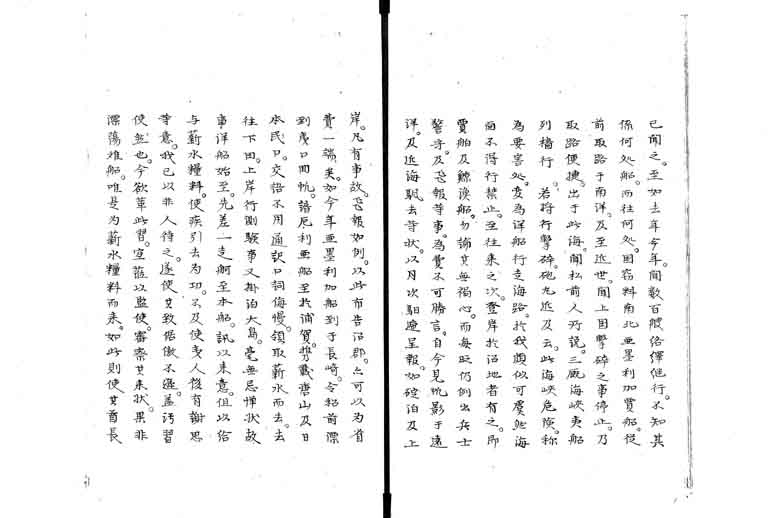 已聞之。至如去年今年。間數百艘絡繹他行。不知其
係何処船。而往何処。因窃料南北亜墨利加賈船。從
前取路于南洋。及至近世。聞上因撃砕之事停止。乃
取路便捷。出于此海。聞私前人所説。三厩海峡夷船
列檣行。若将行撃砕砲丸近及云。此海峡危険。称
為要害処。変為洋船行走海路。於我頗似可慮。然海
面不得行禁止。至往来之次。登岸於沿地者有之。即
賈舶及鯨漁船。勿論其無禍心。而毎時仍例出兵士
警守及飞報等事。為費不可勝言。自今見帆影于遠
洋。及近海駛去等状。以月次駆遞呈報。如碇泊及上
岸。凡有事故。飞報如例。以此布告沿郡。亦可以為省
費一端矣。如今年亜墨利加船到于長崎。令称前漂
到夷口回帆。諳厄利亜船至於浦賀。携載唐山及日
本民口。交語不用通訳。口詞侮慢。領取薪水而去。去
往下田。上岸行測験事。又掛泊大島。毫無忌憚状。故
事洋船始至。先差一支舸至本船。訊以来意。但以給
与薪水糧料。使疾引去為功。不及使夷人懐有謝恩
等意。我已以非人待之。遂使其致倨傲不遜。蓋汚習
使然也。今欲革此習。宜蒞以監使。審察其来状。果非
漂蕩难船。唯是为薪水糧料而来。如此則使其酋長